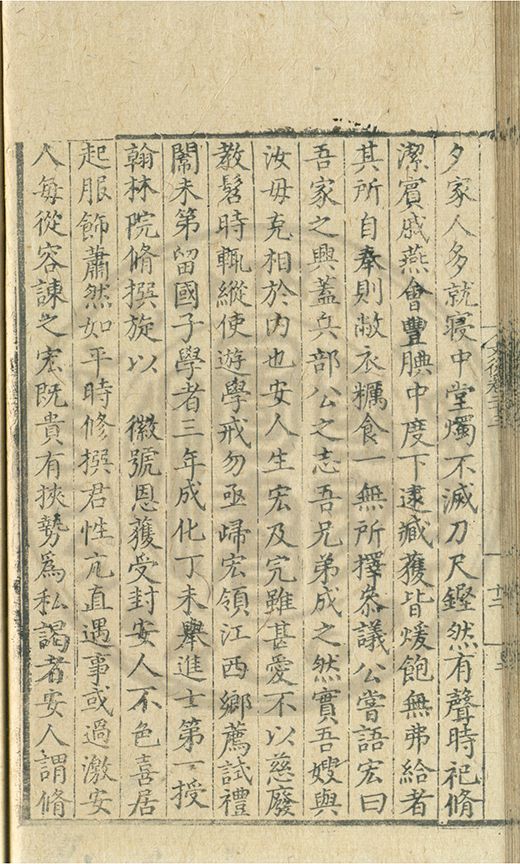 夕家人多就寢中堂燭不滅刀尺鏗然有聲時祀脩
潔賓戚燕會豐腆中度下逮臧獲皆煖飽無弗給者
其所自奉則敝衣糲食一無所擇叅議公嘗語宏曰
吾家之興蓋兵部公之志吾兄弟成之然實吾嫂與
汝毋克相於內也安人生宏及完雖甚愛不以慈廢
教髫時輒縱使遊學戒勿亟歸宏領江西鄉薦試禮
闈未第留國子學者三年成化丁未舉進士第一授
翰林院脩撰旋以　徽號恩獲受封安人不色喜居
起服飾蕭然如平時修撰君性亢直遇事或過激安
人每從容諫之宏既貴有挾勢為私謁者安人謂脩